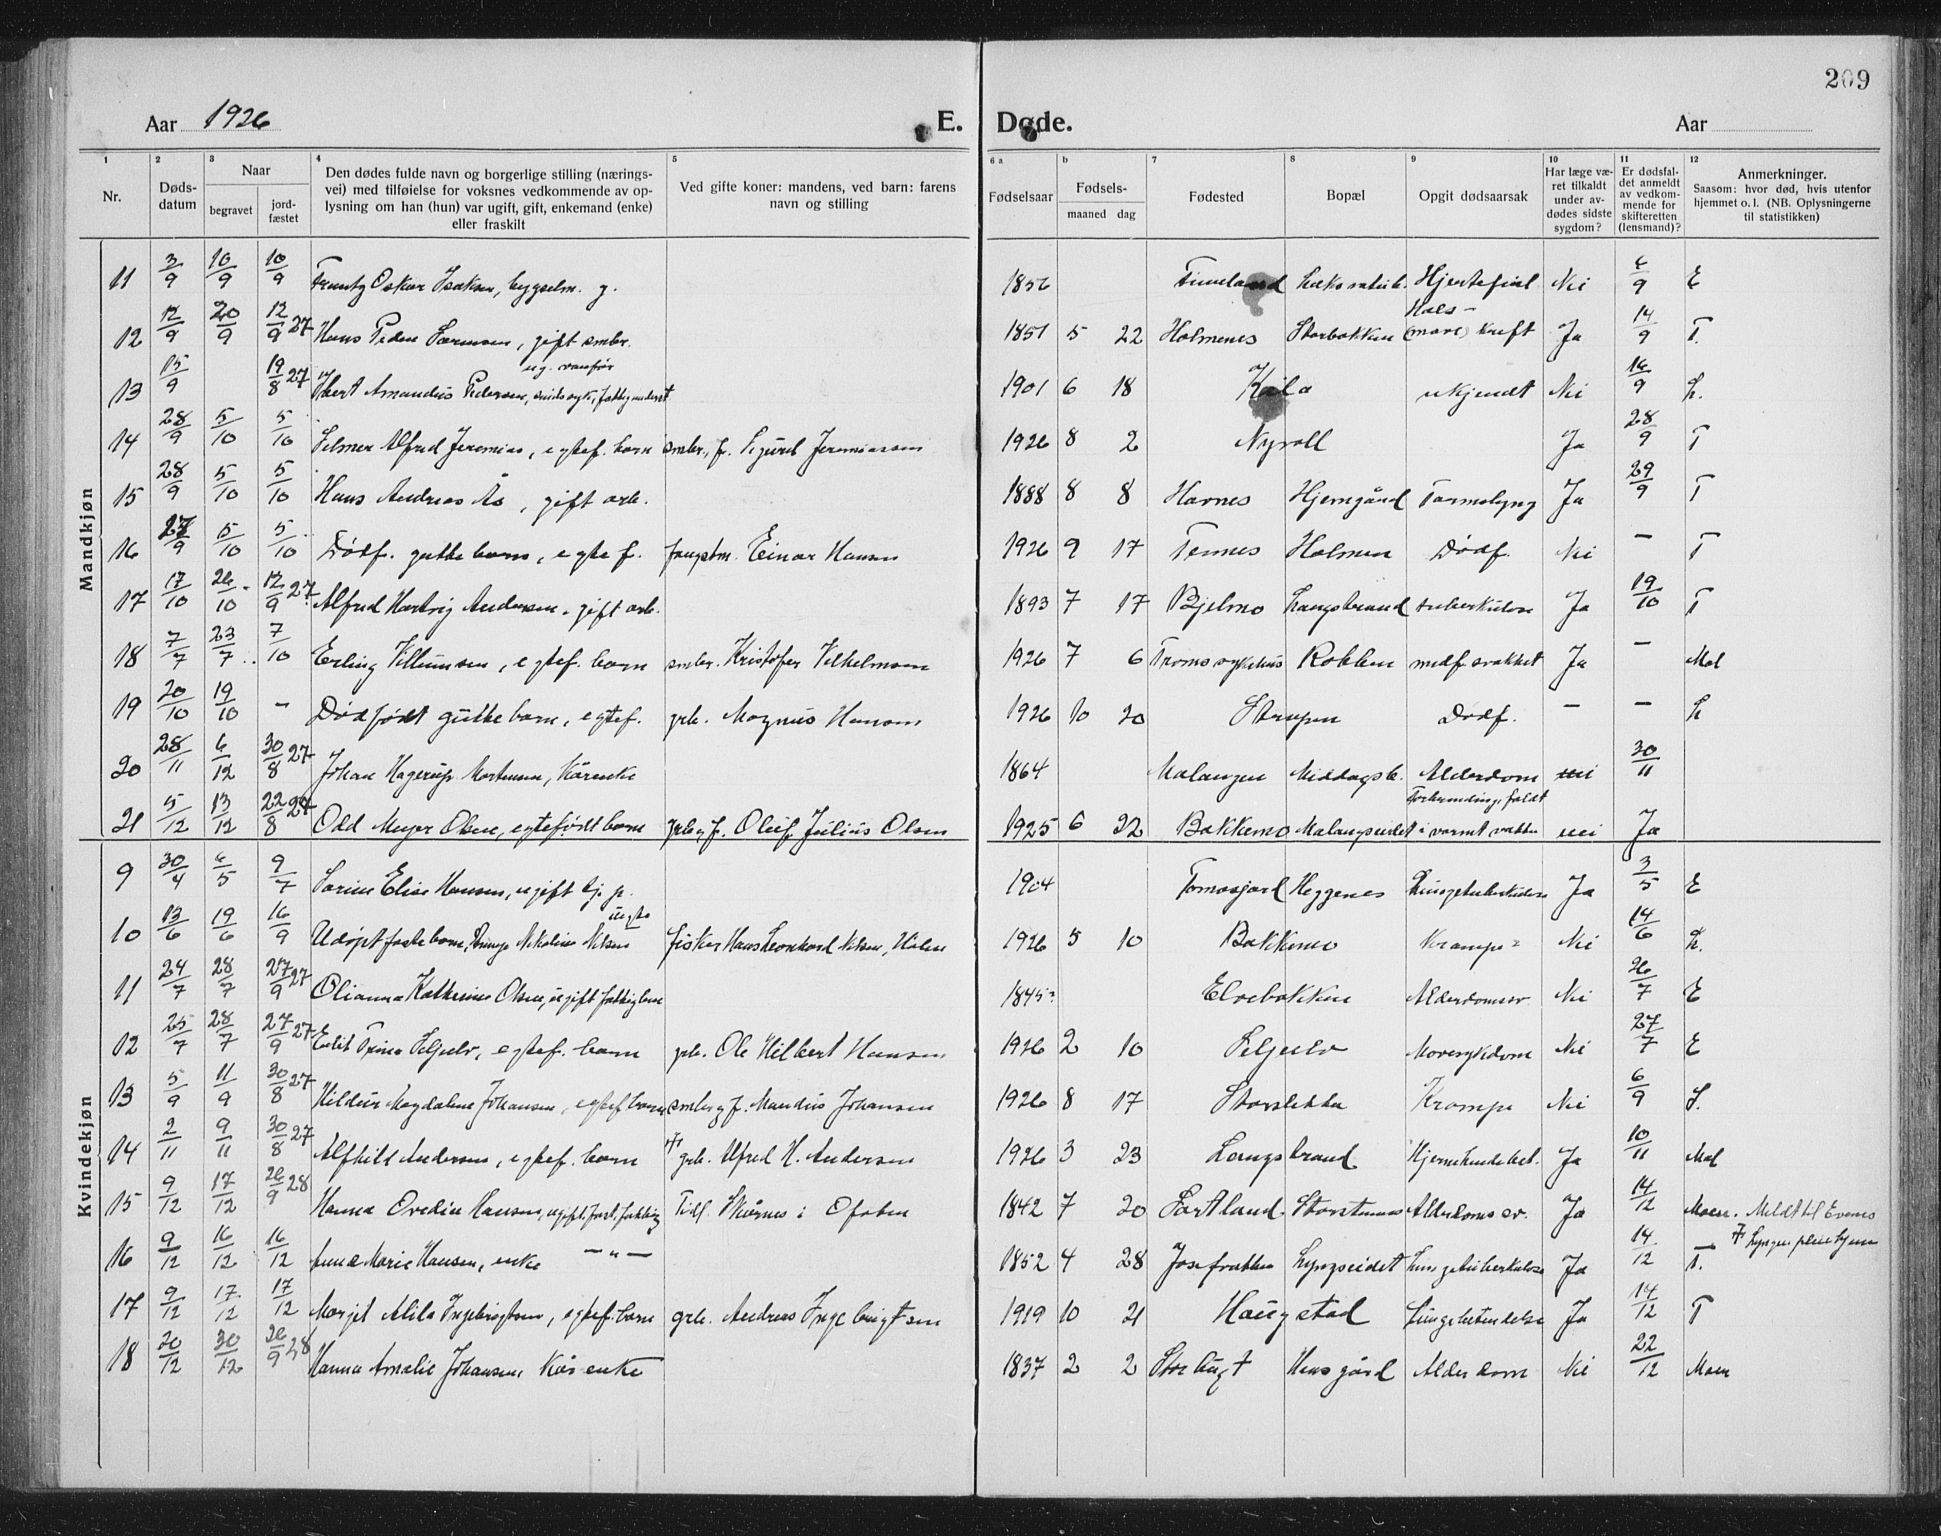 209
Aar 1926 E. Døde. Aar
1 2 3 4 5 6 a b 7 8 9 10 11 12
Nr. Døds-datum Naar begravet jord-fæstet Den dødes fulde navn og borgerlige stilling (nærings-vei) med tilføielse for voksnes vedkommende av op-lysning om han (hun) var ugift, gift, enkemand (enke) eller fraskilt Ved gifte koner: mandens, ved barn: farens navn og stilling Fødselsaar Fødsels- maaned dag Fødested Bopæl Opgit dødsaarsak Har læge væ-ret tilkaldt under av-dødes sidste sygdom? Er dødsfal-det anmeldt av vedkom-mende for skifteretten (lensmand)? Anmerkninger. Saasom: hvor død, hvis utenfor hjemmet o. l. (NB. Oplysningerne til statistikken)
Mandkjøn
11 3/9 10/9 10/9 Oskar Isaksen, g. 1856 Hjertefeil Nei 6/9 E
12 12/9 20/9 12/9 27 Hans Peder Sørensen, gift smbr. 1851 5 22 Holmenes Storbakken Hals- (mave) kreft Ja 14/9 T.
13 15/9 19/8 27 Amandus Pedersen, ug. vanfør 1901 6 18 ukjendt Nei 16/9 L.
14 28/9 5/10 5/10 Selmer Alfred Jeremias, egtef. barn smbr., f. Sigurd Jeremiassen 1926 8 2 Nyvoll Ja 28/9 T
15 28/9 5/10 5/10 Hans Andreas Ås, gift arb. 1888 8 8 Havnes Hjemgård Tarmslyng Ja 29/9 T
16 27/9 5/10 5/10 Dødf. guttebarn, egtef. Einar Hansen 1926 9 17 Tennes Holmen Dødf. Nei — T
17 17/10 26/10 12/9 27 Alfred Hartvig Andersen, gift arb. 1893 7 17 Bjelmo Langstrand tuberkulose Ja 19/10 T
18 7/7 23/7 7/10 Erling Villumsen, egtef. barn smbr. Kristofer Vilhelmsen 1926 7 6 Troms sykehus medf. svakhet Ja — Mal
19 20/10 19/10 — Dødfødt guttebarn, egtef. grb. Magnus Hansen 1926 10 20 Dødf. — — L
20 28/11 6/12 30/8 27 Johan Hagerup Mortensen, kårenke 1864 Malangen Middagsb. Alderdom nei 30/11
21 5/12 13/12 22/8 Odd Meyer Olsen, egtefødt barn Oluf Julius Olsen 1925 6 22 Bakkemo Malangseidet Forbrænding, faldt i varmt vatten nei Ja
Kvindekjøn
9 30/4 6/5 9/7 Sarine Elise Hansen, ugift 1904 Heggenes Lungetuberkulose Ja 3/5 E
10 13/6 19/6 16/9 Udøpt barn, Nikoline Nilsen uegte fisker Hans Leonhard Nilsen, 1926 5 10 Bakkemo Krampe Nei 14/6 L.
11 24/7 28/7 27/9 27 Olianna Kathrine Olsen, ugift fattiglem 1845? Elvebakken Alderdomssv. Nei 26/7 E
12 25/7 28/7 27/9 27 Trine Seljelv, egtef. barn grb. Ole Hilbert Hansen 1926 2 10 Seljelv Mavesykdom Nei 27/7 E
13 5/9 11/9 30/8 27 Hildur Magdalene Johansen, egtef. barn Johansen 1926 8 17 Storsletta Krampe Nei 6/9 S.
14 2/11 9/11 30/8 27 Alfhild Andersen, egtef. barn grb. Alfred H. Andersen 1926 3 23 Langstrand Hjernehindebet. Ja 10/11 Mal
15 9/12 17/12 26/9 28 Hanna Ovedie Hansen, ugift, fattig Tidl. Skårnes i Ofoten 1842 7 20 Alderdomssv. Ja 14/12 Moen. Meldt til Evenes
16 9/12 16/12 16/12 Anne Marie Hansen, enke — " — 1852 4 28 Lyngseidet Lungetuberkulose Ja 14/12 T. Lyngen pleiehjem
17 9/12 17/12 17/12 Margit Alila Ingebrigtsen, egtef. barn grb. Andreas Ingebrigtsen 1919 10 21 Haugstad Lungebetendelse Ja 14/12 T
18 20/12 30/12 26/9 28 Hanna Amalie Johansen, kårenke 1837 2 2 Hensgård Alderdom Nei 22/12 Moen